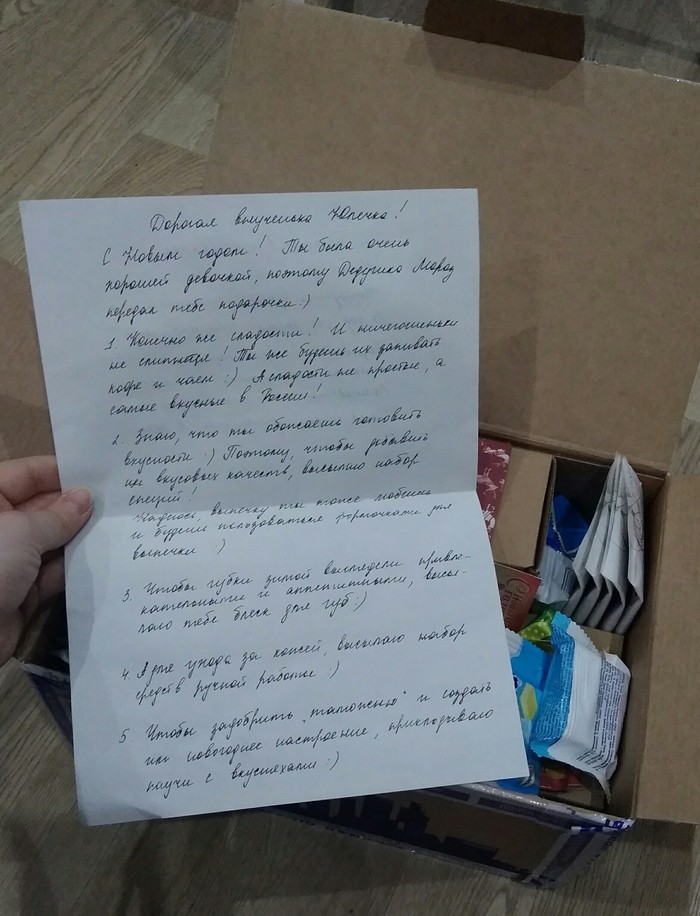 Дорогая внученька Юлечка!
С Новым годом! Ты была очень
хорошей девочкой, поэтому Дедушка Мороз
передал тебе подарочки :)
1 Конечно же сладости! И ничегошеньки
не слипнется! Ты же будешь их запивать
кофе и чаем :) А сладости не простые, а
самые вкусные в России!
2. Знаю, что ты обожаешь готовить
вкусности :) Поэтому, чтобы добавить
им вкусовых качеств, высылаю набор
специй!
Надеюсь, выпечку ты тоже любишь
и будешь пользоваться формочками для
выпечки :)
3. Чтобы губки зимой выглядели привле-
кательными и аппетитными, высы-
лаю тебе блеск для губ :)
4. А для ухода за кожей, высылаю набор
средств ручной работы :)
5. Чтобы задобрить "таможню" и создать
им новогоднее настроение, прикладываю
пауч с вкусняхами :)